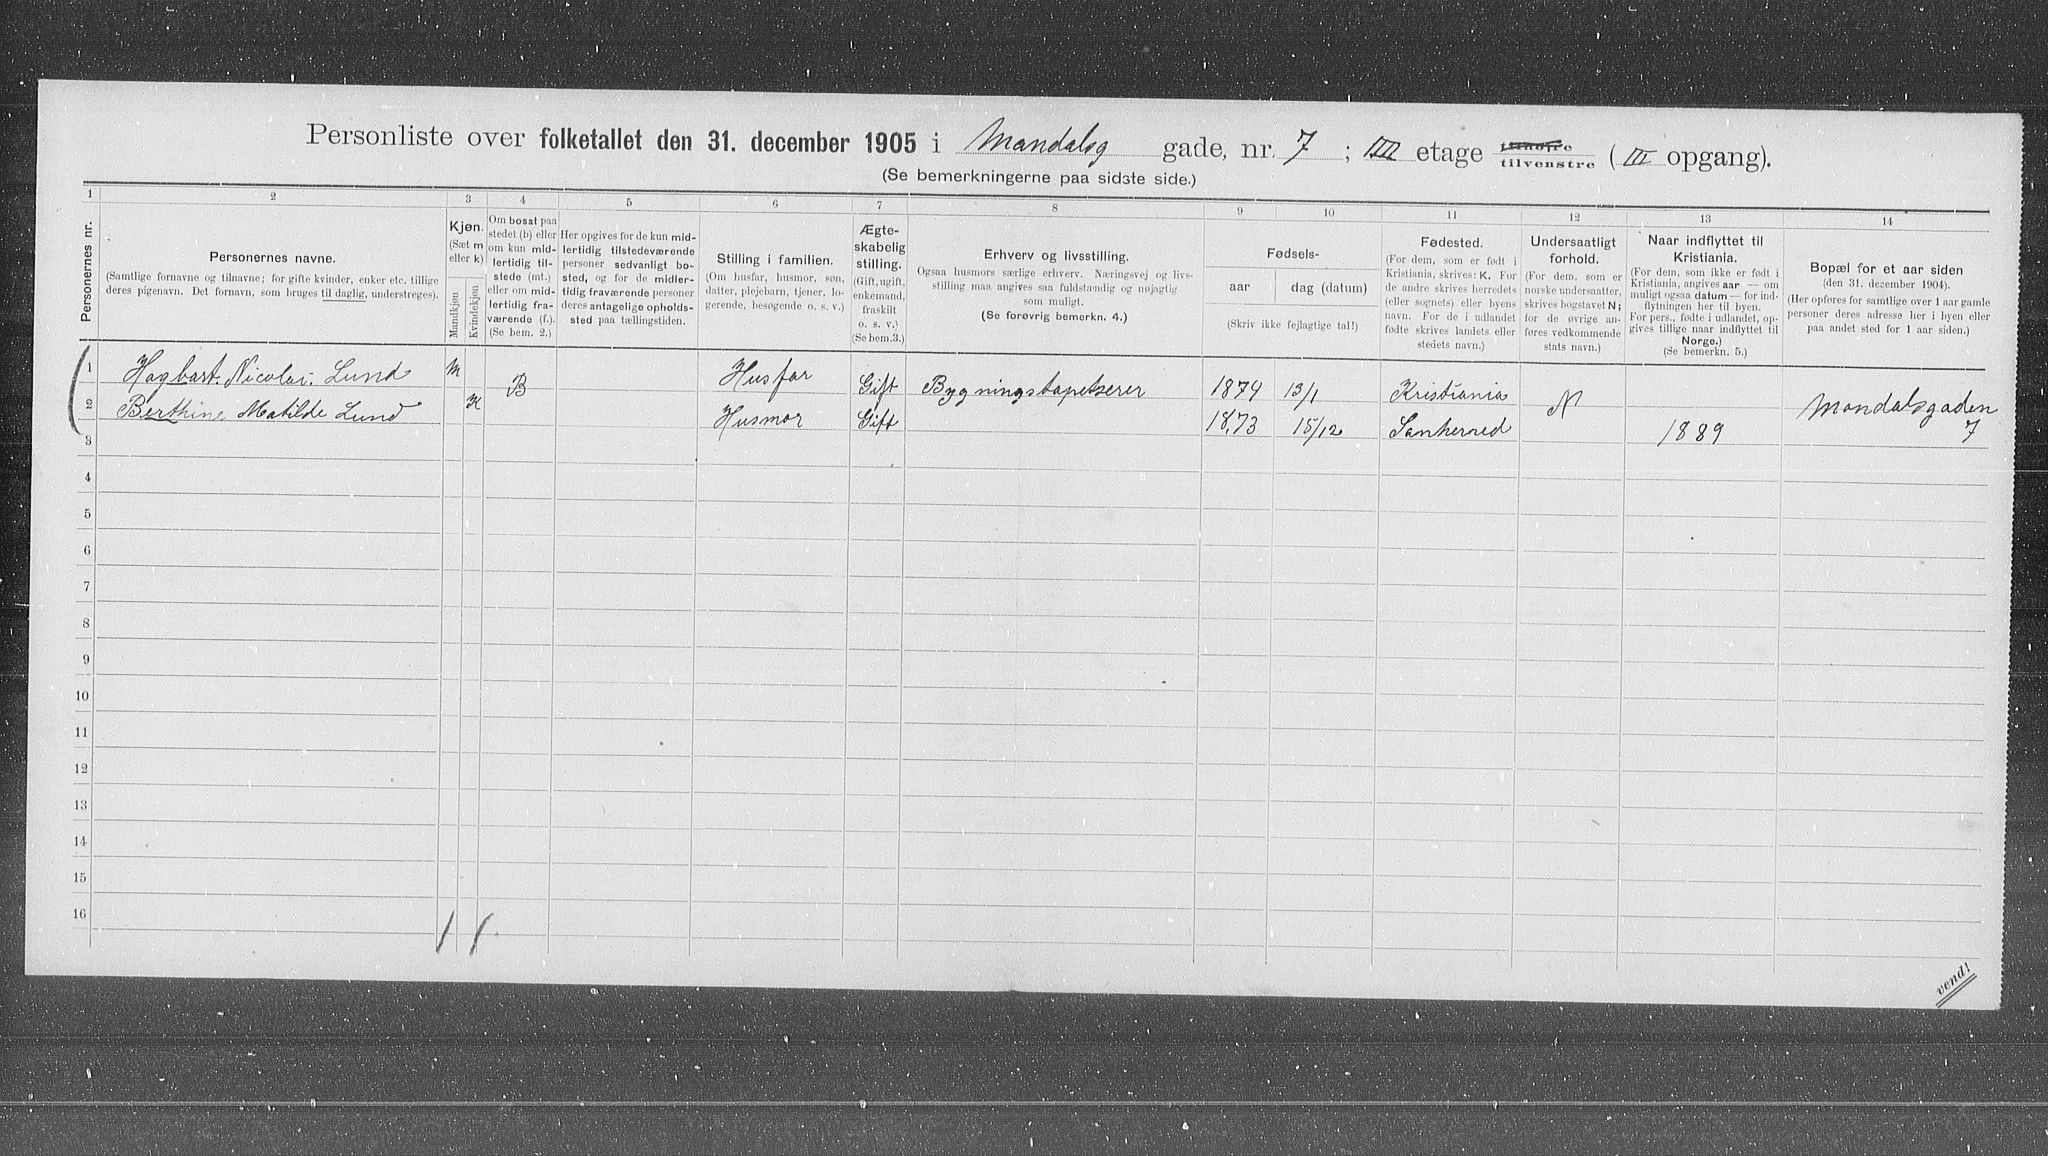 Personliste over folketallet den 31. december 1905 i Mandalsg gade, nr. 7 ; IIII etage tilhøire tilvenstre ( III opgang).
(Se bemerkningerne paa sidste side.)
1 2 3 4 5 6 7 8 9 10 11 12 13 14
Personernes nr.
Personernes navne.
(Samtlige fornavne og tilnavne; for gifte kvinder, enker etc. tillige
deres pigenavn. Det fornavn, som bruges til daglig, understreges).
Kjøn.
(Sæt m
eller k)
Mandkjøn
Kvindekjøn
Om bosat paa
stedet (b) eller
om kun mid-
lertidig til-
stede (mt.)
eller om mid-
lertidig fra-
værende (f.).
(Se bem. 2.)
Her opgives for de kun mid-
lertidig tilstedeværende
personer sedvanligt bo-
sted, og for de midler-
tidig fraværende personer
deres antagelige opholds-
sted paa tællingstiden.
Stilling i familien.
(Om husfar, husmor, søn,
datter, plejebarn, tjener, lo-
gerende, besøgende o. s. v.)
Ægte-
skabelig
stilling.
(Gift, ugift,
enkemand,
fraskilt
o. s. v.)
(Se bem.3.)
Erhverv og livsstilling.
Ogsaa husmors særlige erhverv. Næringsvej og livs-
stilling maa angives saa fuldstændig og nøjagtig
som muligt.
(Se forøvrig bemerkn. 4.)
Fødsels-
aar dag (datum)
(Skriv ikke fejlagtige tal!)
Fødested.
(For dem, som er født i
Kristiania, skrives: K. For
de andre skrives herredets
(eller sognets) eller byens
navn. For de i udlandet
fødte skrives landets eller
stedets navn.)
Undersaatligt
forhold.
(For dem, som er
norske undersaatter,
skrives bogstavet N;
for de øvrige an-
føres vedkommende
stats navn.)
Naar indflyttet til
Kristiania.
(For dem, som ikke er født i
Kristiania, angives aar — om
muligt ogsaa datum — for ind-
flytningen her til byen.
For pers., fødte i udlandet, op-
gives tillige naar indflyttet til
Norge.)
(Se bemerkn. 5.)
Bopæl for et aar siden
(den 31. december 1904).
(Her opføres for samtlige over 1 aar gamle
personer deres adresse her i byen eller
paa andet sted for 1 aar siden.)
1 Hagbart. Nicolai. Lund m B Husfar Gift Bygningstapetserer 1874 13/1 Kristiania N Mandalsgaden 7
2 Berthine Matilde Lund K Husmor Gift 18,73 15/12 Sanherred 1889
3
4
5
6
7
8
9
10
11
12
13
14
15
16
1 1
vend!